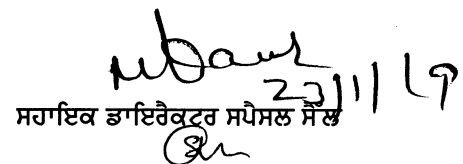 23/1/19
ਸਹਾਇਕ ਡਾਇਰੈਕਟਰ ਸਪੈਸਲ ਸੈੱਲ